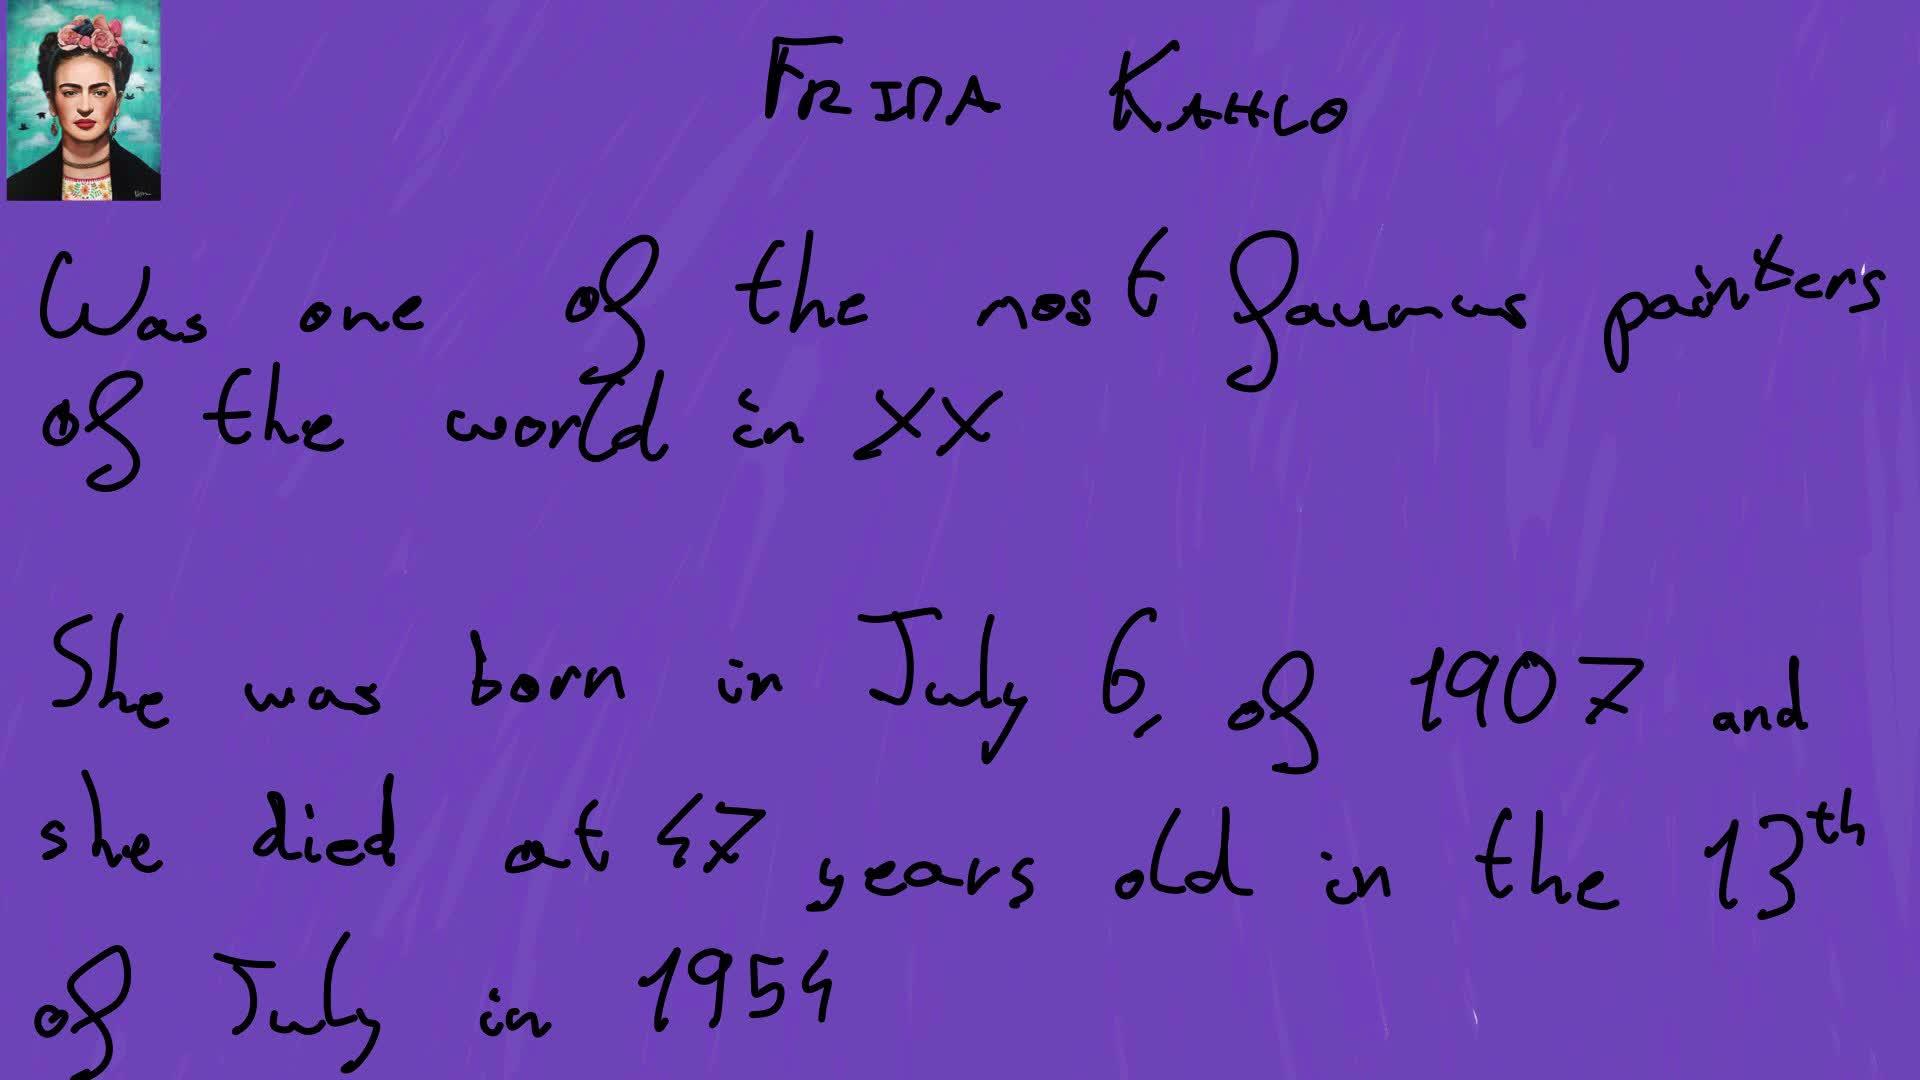 FRIDA KAHLO
Was one of the most faumus painters
of the world in XX
She was born in July 6, of 1907 and
she died at 47 years old in the 13th
of July in 1954